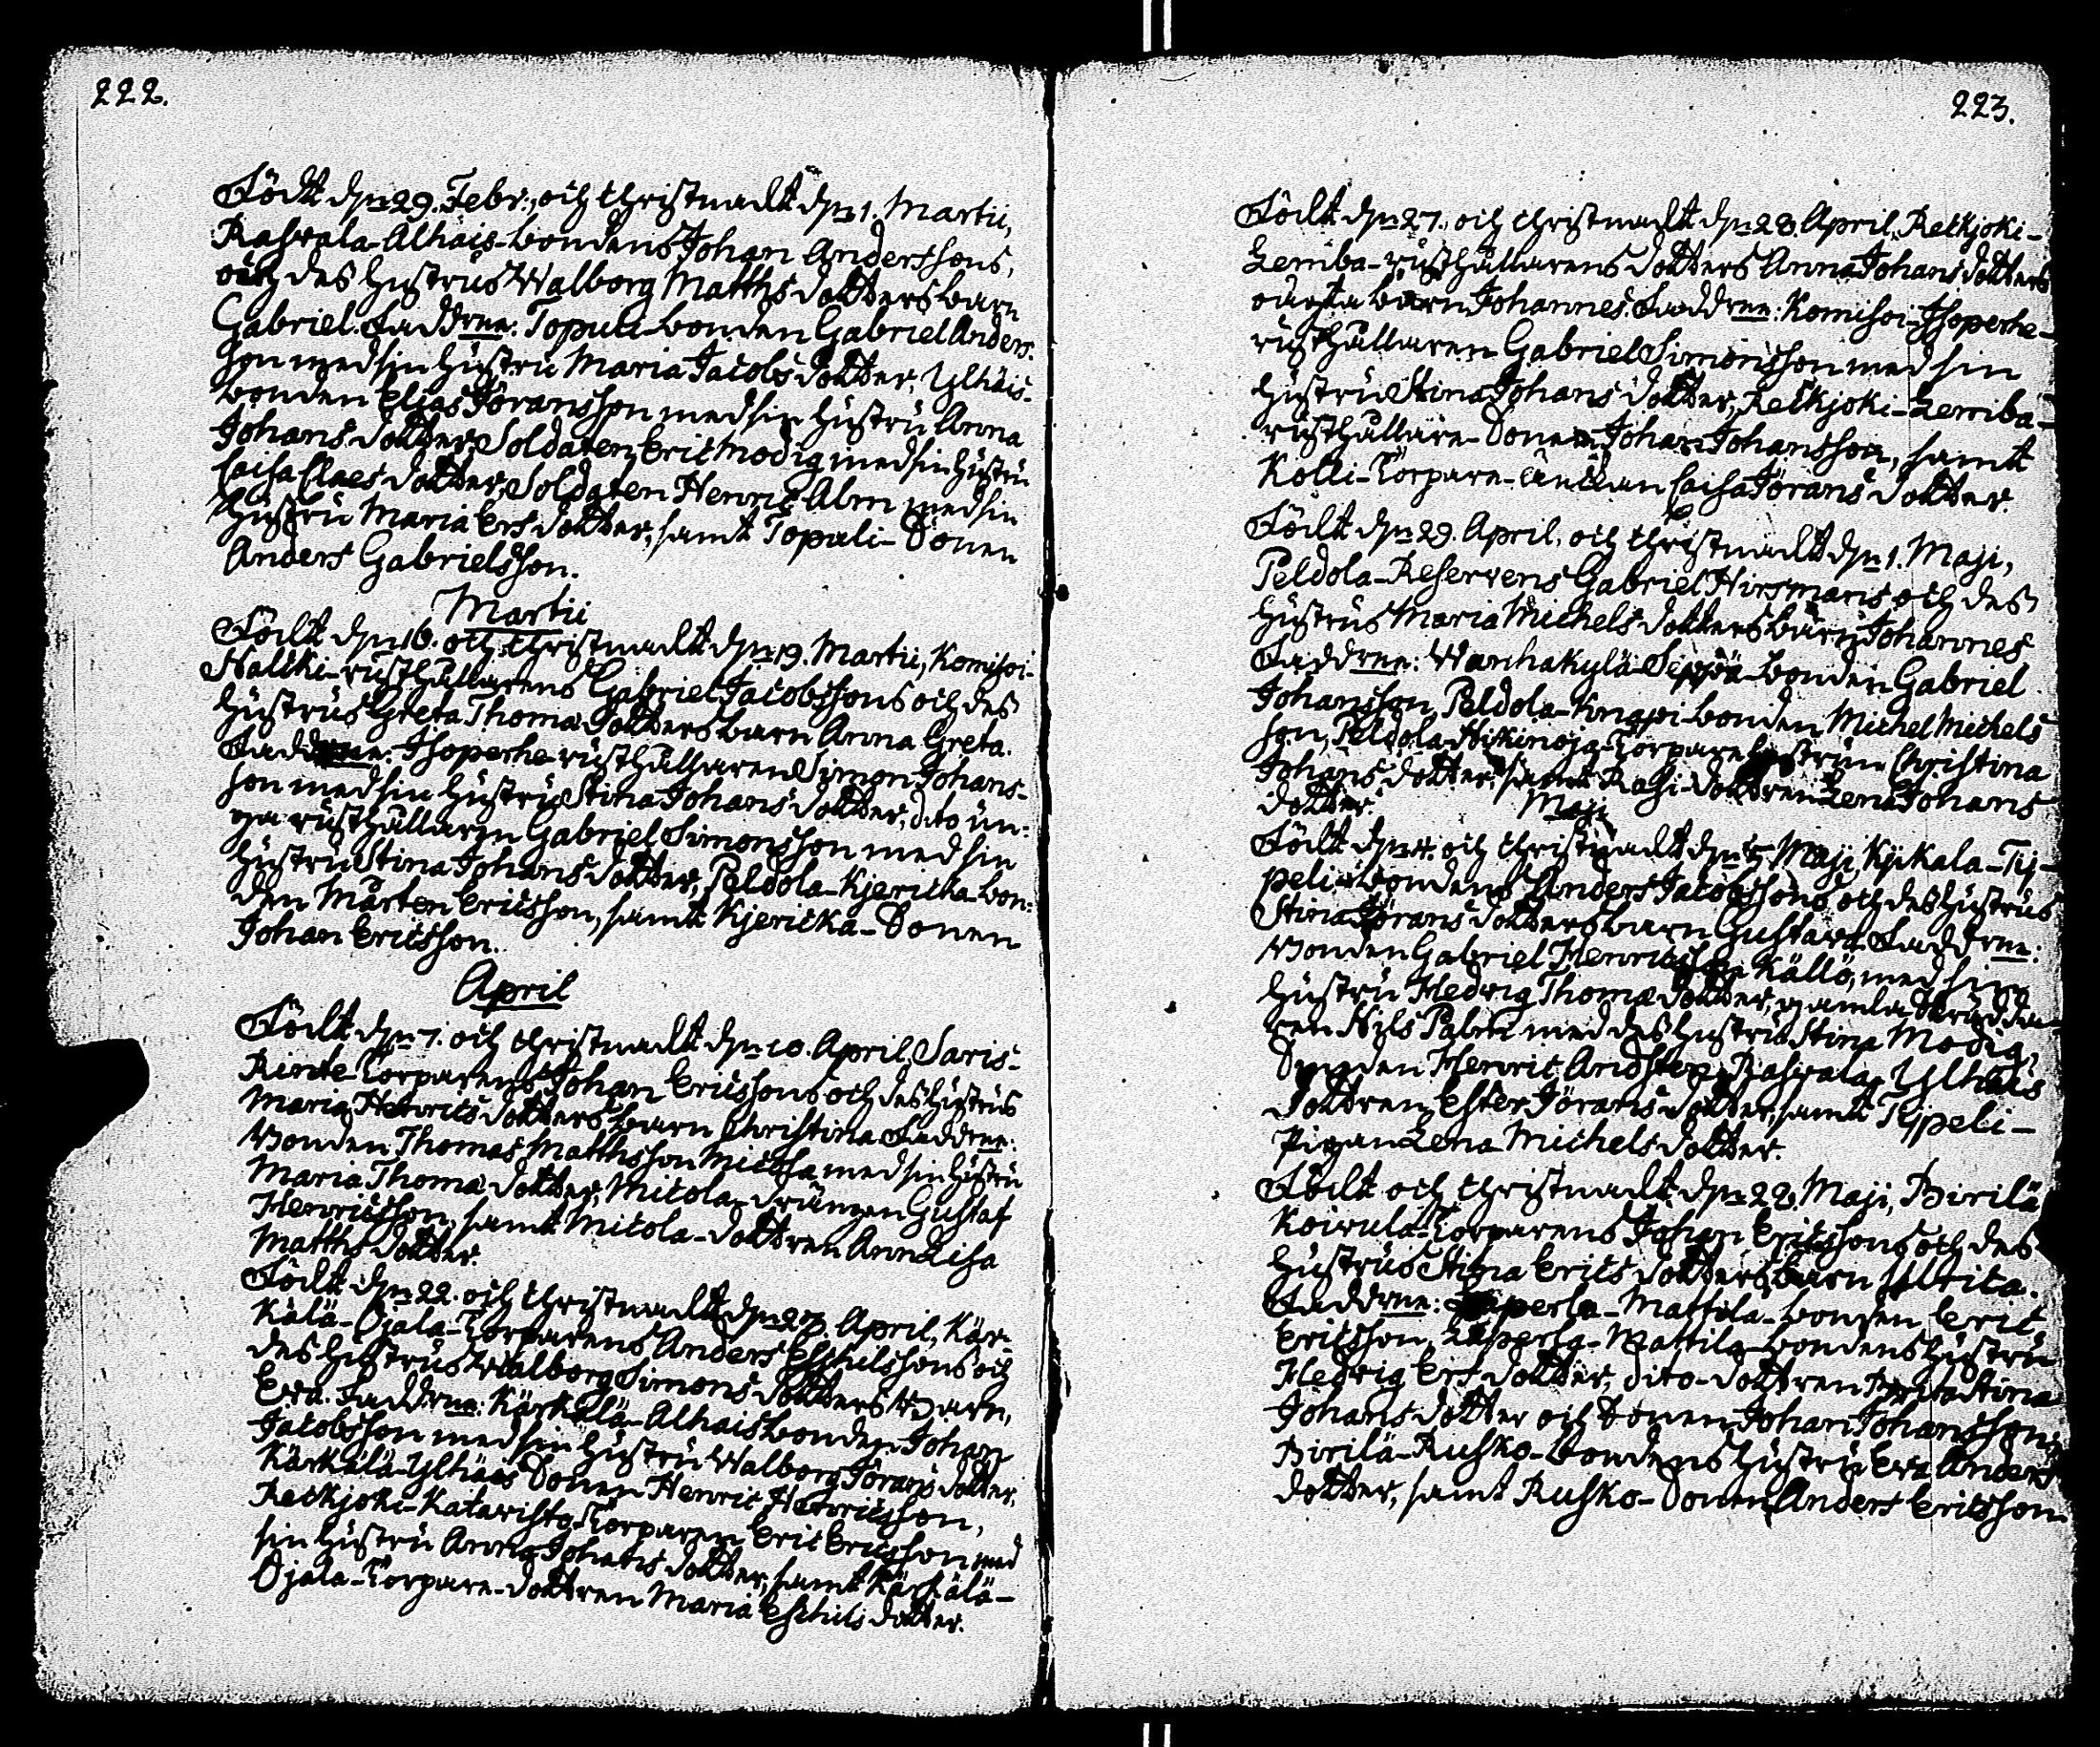 222.
Födt dn 29. Febr:, och Christnadt dn 1. Martii,
Rahvala-Alhais-bondens Johan Anderssons,
och des hustrus Walborg Matths dotters barn
Gabriel. Faddrne: Topuli-bonden Gabriel Anders-
son med sin hustru Maria Jacobs dotter, Ylhäis-
bonden Elias Jöransson med sin hustru Anna
Johans dotter, Soldaten Eric Modig med sin hustru
Caisa Claes dotter, Soldaten Henric Alm med sin
hustru Maria Ers dotter, samt Topuli-Sonen
Anders Gabrielsson.
Martii
Födt dn 16. och Christnadt dn 19. Martii, Komisoi-
Nallki-rusthållarens Gabriel Jacobssons och des
hustrus Greta Thomæ dotters barn Anna Greta.
Faddrne: Isoperhe-rusthållaren Simon Johans-
son med sin hustru Stina Johans dotter, dito un-
ga rusthållaren Gabriel Simonsson med sin
hustru Stina Johans dotter, Peldola-Kjericka-bon-
den Mårten Ericsson, samt Kjericka-Sonen
Johan Ericsson.
April
Födt dn 7. och Christnadt dn 10. April, Saris-
Rinte-Torparens Johan Ericssons och des hustrus
Maria Henrics dotters barn Christina. Faddrne:
Bonden Thomas Matthsson Micola med sin hustru
Maria Thomæ dotter, Micola-drängen Gustaf
Henricsson, samt Micola-dottren Anna Lisa
Matths dotter.
Födt dn 22. och Christnadt dn 27. April, Kär-
kälä-Ojala-Torparens Anders Eschilssons och
des hustrus Walborg Simons dotters Barn,
Eva. Faddrne: Kärkälä-Alhaisbonden Johan
Jacobsson med sin hustru Walborg Jörans dotter,
Kärkälä-Ylhäis Sonen Henric Henricsson,
Reckjoki-Katavisto-Torparen Eric Ericsson med
sin hustru Anna Johans dotter, samt Kärkälä-
Ojala-Torpare-dottren Maria Eschils dotter.
223.
Födt dn 27. och Christnadt dn 28. April, Reckjoki-
Lemba-rusthållarens dotters Anna Johans dotters
oägta barn Johannes. Faddrne: Komisoi-Isoperhe-
rusthållaren Gabriel Simonsson med sin
hustru Stina Johans dotter, Reckjoki-Lemba-
rusthållare-Sonen Johan Johansson, samt
Kolli-Torpare-Enckan Caisa Jörans dotter.
Födt dn 29. April, och Christnadt dn 1. Maji,
Peldola-Reservens Gabriel Hirsmans och des
hustrus Maria Michels dotters barn Johannes
Faddrne: Wanhakylä-Seppä-bonden Gabriel
Johansson, Peldola-Knapi-bonden Michel Michels
son, Peldola-Hikinoja-Torpare hustrun Christina
Johans dotter, samt Rahi-dottren Lena Johans
dotter.
Maji
Födt dn 4. och Christnadt dn 5. Maji, Kjikala-Tij-
peli-bondens Anders Jacobssons och des hustrus
Stina Jörans dotters barn Gustava. Faddrne:
Bonden Gabriel Henricsson Källö, med sin
hustru Hedvig Thomæ dotter, gamla Skrädda-
ren Nils Palm med des hustru Stina Modig,
Henric Andsten, Rahvala, Ylhäis
dottren Ester Jörans dotter, samt Tijpeli-
Pigan Lena Michels dotter.
Födt och Christnadt dn 22. Maji, Birilä
Koivula-Torparens Johan Ericssons och des
hustrus Stina Erics dotters barn Ulrica.
Faddrne: Laperla-Mattila-bonden Eric
Ericsson, Laperla-Mattila-bondens hustru
Hedvig Ers dotter, dito-dottren Brita Stina
Johans dotter och Sonen Johan Johansson,
Birilä-Rusko-bondens hustru Eva Anders
dotter, samt Rusko-Sonen Anders Ericsson.